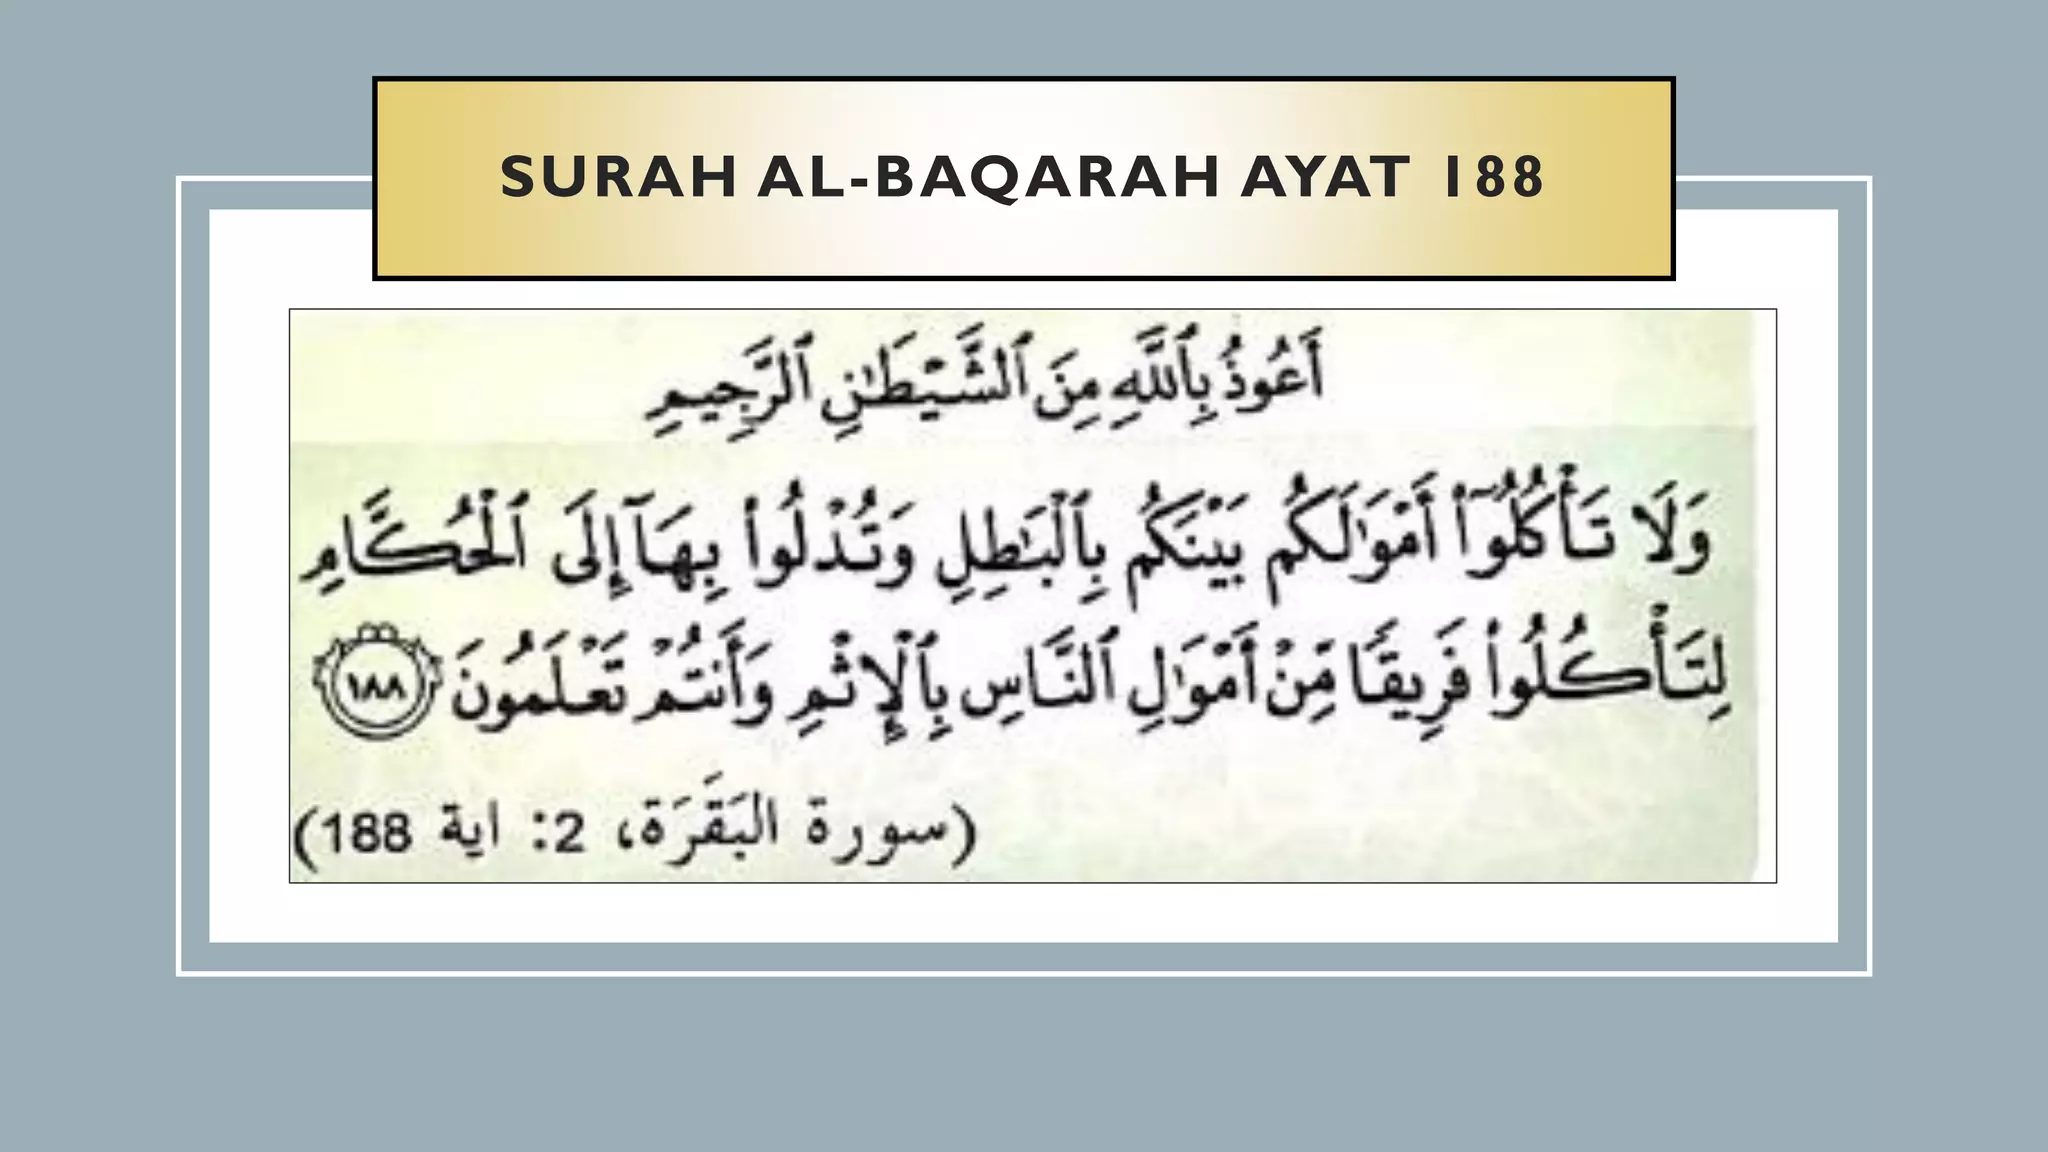 SURAH AL-BAQARAH AYAT 188
أَعُوذُ بِٱللَّهِ مِنَ ٱلشَّيْطَـٰنِ ٱلرَّجِيمِ
وَلَا تَأْكُلُوٓا۟ أَمْوَٰلَكُم بَيْنَكُم بِٱلْبَـٰطِلِ وَتُدْلُوا۟ بِهَآ إِلَى ٱلْحُكَّامِ
لِتَأْكُلُوا۟ فَرِيقًا مِّنْ أَمْوَٰلِ ٱلنَّاسِ بِٱلْإِثْمِ وَأَنتُمْ تَعْلَمُونَ ١٨٨
(سورة البَقَرَة، 2: اية 188)